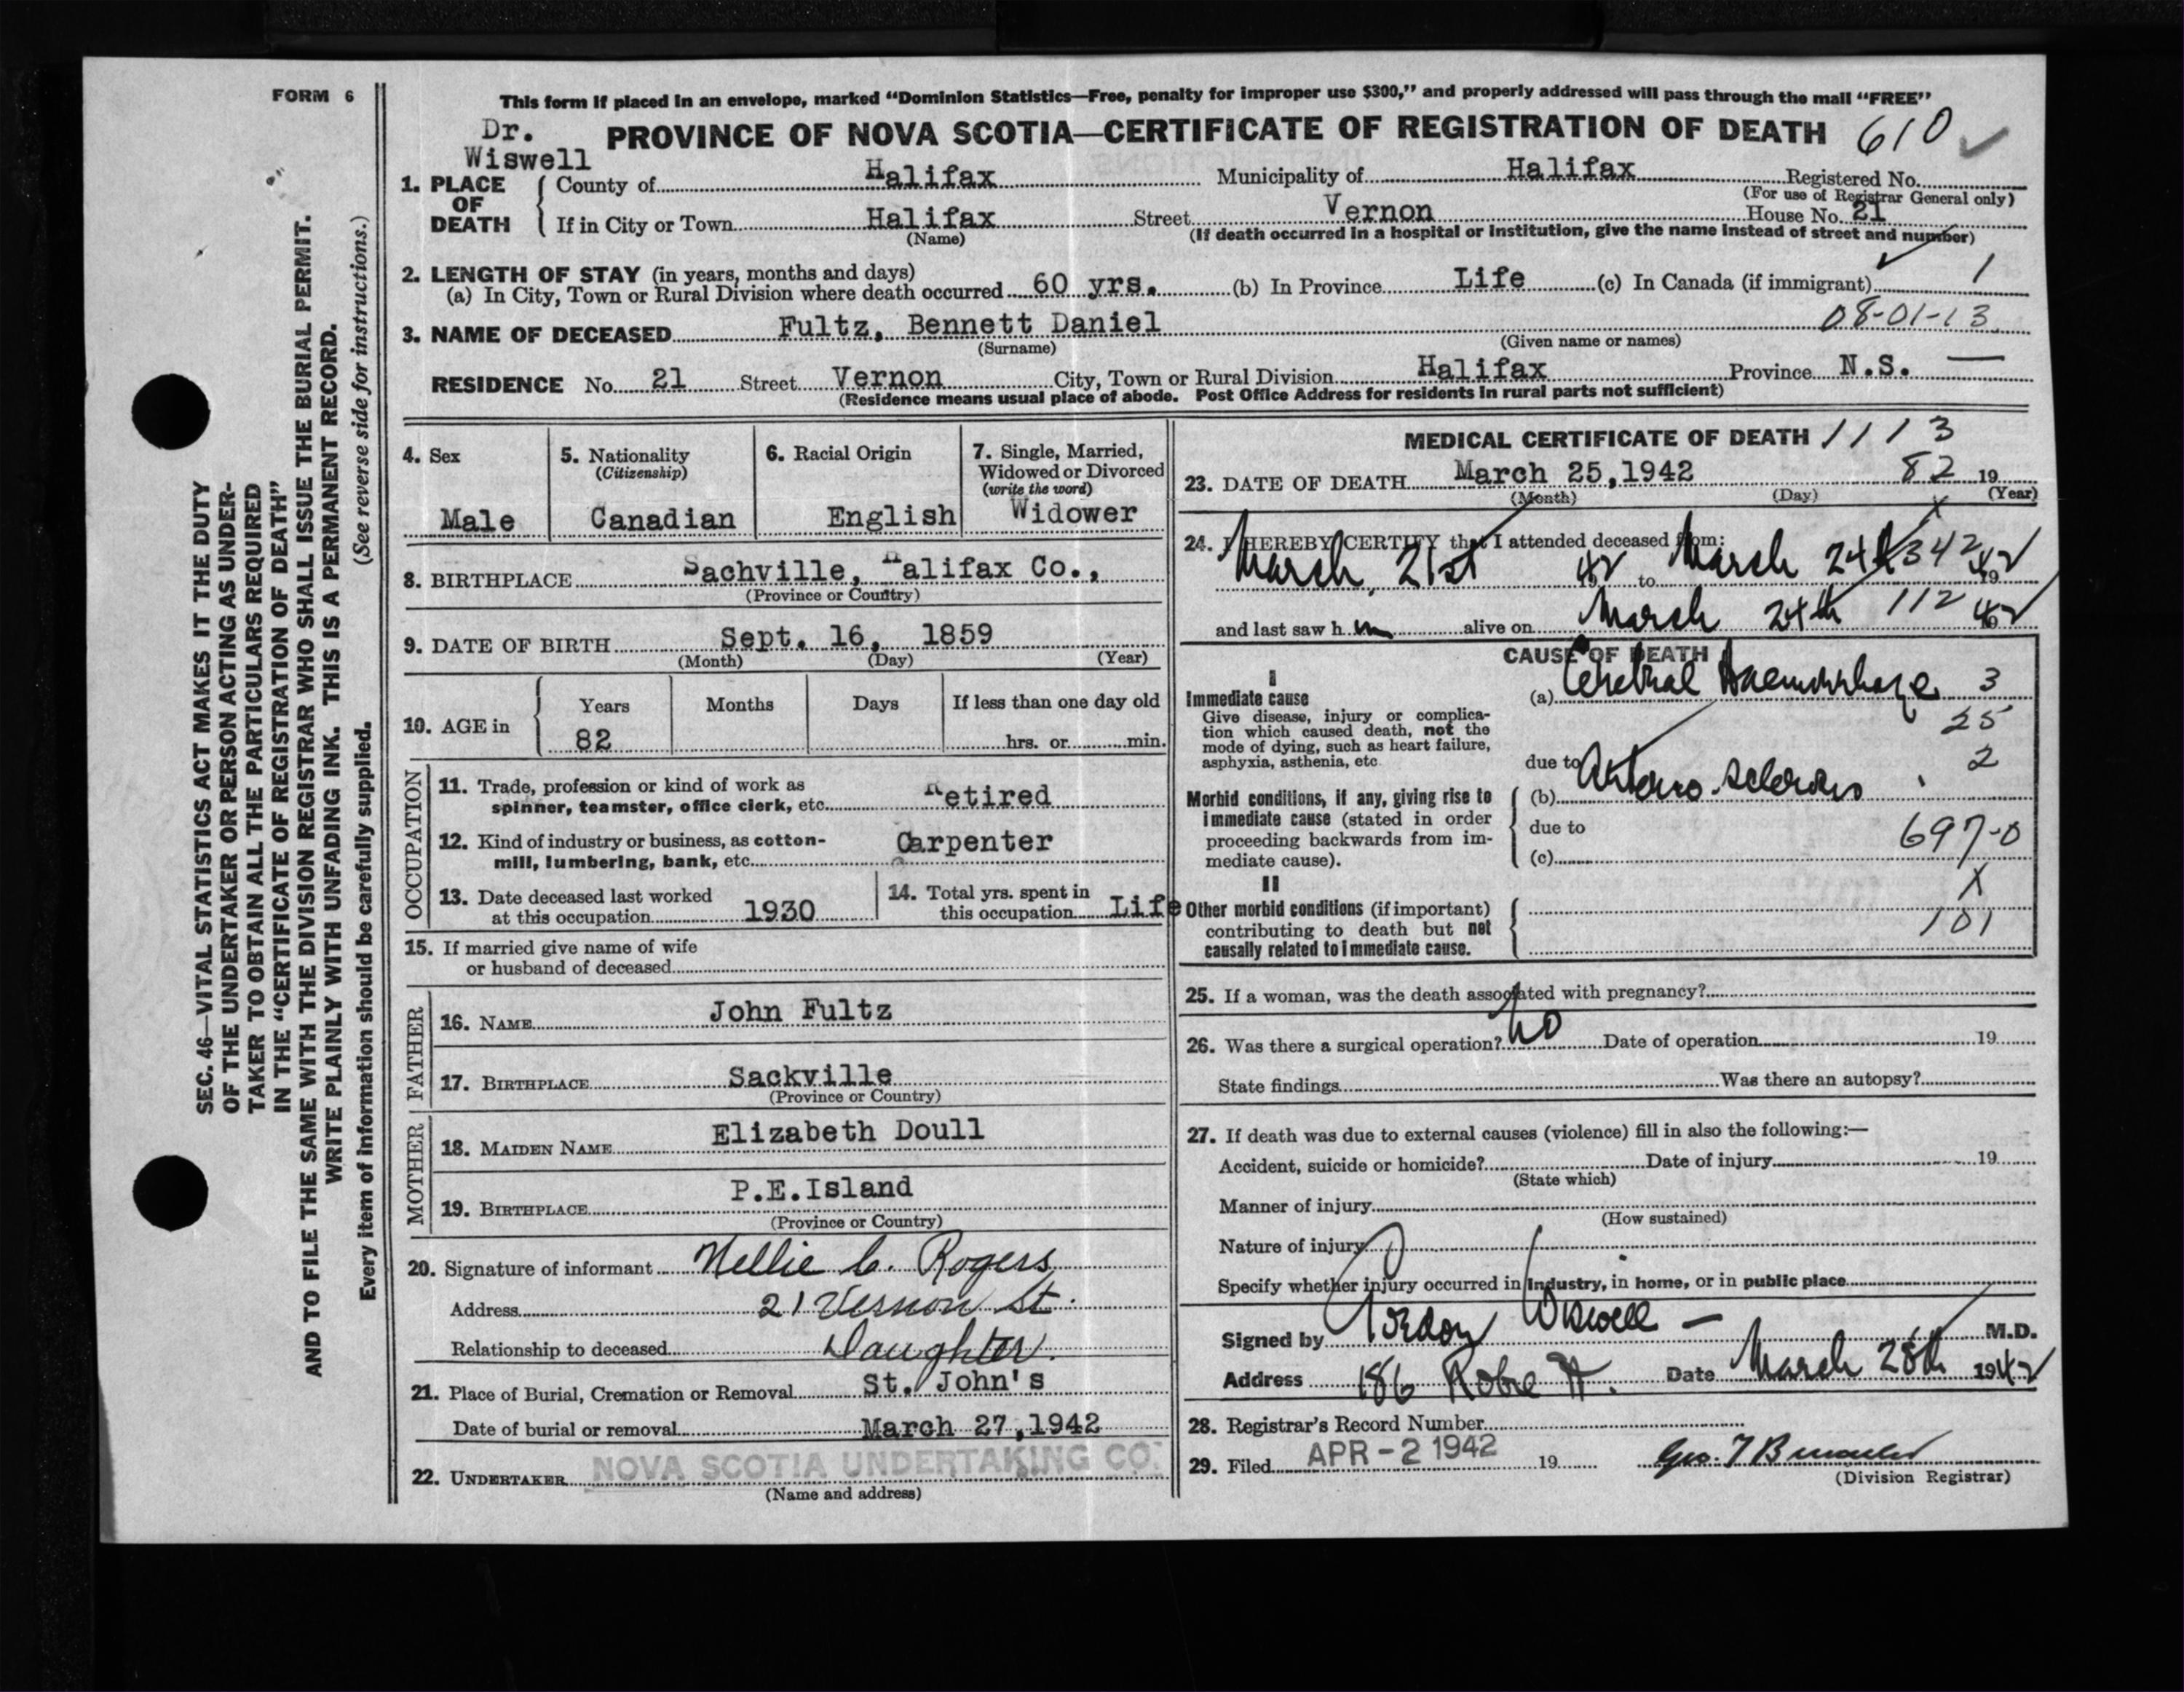 FORM 6
This form if placed in an envelope, marked “Dominion Statistics—Free, penalty for improper use $300,” and properly addressed will pass through the mail “FREE”
Dr. Wiswell
PROVINCE OF NOVA SCOTIA—CERTIFICATE OF REGISTRATION OF DEATH 610
1. PLACE OF DEATH { County of Halifax Municipality of Halifax Registered No.
(For use of Registrar General only)
If in City or Town Halifax Street Vernon House No. 21
(Name) (If death occurred in a hospital or institution, give the name instead of street and number)
2. LENGTH OF STAY (in years, months and days)
(a) In City, Town or Rural Division where death occurred 60 yrs. (b) In Province Life (c) In Canada (if immigrant) 1
08-01-13
3. NAME OF DECEASED Fultz, Bennett Daniel
(Surname) (Given name or names)
RESIDENCE No. 21 Street Vernon City, Town or Rural Division Halifax Province N.S. —
(Residence means usual place of abode. Post Office Address for residents in rural parts not sufficient)
4. Sex Male
5. Nationality (Citizenship) Canadian
6. Racial Origin English
7. Single, Married, Widowed or Divorced (write the word) Widower
8. BIRTHPLACE Sachville, Halifax Co.,
(Province or Country)
9. DATE OF BIRTH Sept. 16, 1859
(Month) (Day) (Year)
10. AGE in { Years 82 Months Days If less than one day old hrs. or min.
OCCUPATION
11. Trade, profession or kind of work as
spinner, teamster, office clerk, etc. Retired
12. Kind of industry or business, as cotton-
mill, lumbering, bank, etc. Carpenter
13. Date deceased last worked
at this occupation 1930
14. Total yrs. spent in
this occupation Life
15. If married give name of wife
or husband of deceased
FATHER
16. NAME John Fultz
17. BIRTHPLACE Sackville
(Province or Country)
MOTHER
18. MAIDEN NAME Elizabeth Doull
19. BIRTHPLACE P.E.Island
(Province or Country)
20. Signature of informant Nellie C. Rogers
Address 21 Vernon St.
Relationship to deceased Daughter.
21. Place of Burial, Cremation or Removal St. John's
Date of burial or removal March 27, 1942
22. UNDERTAKER NOVA SCOTIA UNDERTAKING CO.
(Name and address)
MEDICAL CERTIFICATE OF DEATH 1113
23. DATE OF DEATH March 25, 1942 82 19
(Month) (Day) (Year)
24. I HEREBY CERTIFY that I attended deceased from: X
March 21st 1942 to March 24th 342 1942
and last saw h im alive on March 24th 112 1942
CAUSE OF DEATH
I
Immediate cause
Give disease, injury or complica-
tion which caused death, not the
mode of dying, such as heart failure,
asphyxia, asthenia, etc.
(a) Cerebral Haemorrhage 3
25
due to 2
Morbid conditions, if any, giving rise to
immediate cause (stated in order
proceeding backwards from im-
mediate cause).
(b) Arterio-sclerosis
due to 697-0
(c)
X
II
Other morbid conditions (if important)
contributing to death but not
causally related to immediate cause.
101
25. If a woman, was the death associated with pregnancy?
26. Was there a surgical operation? No Date of operation 19
State findings Was there an autopsy?
27. If death was due to external causes (violence) fill in also the following:—
Accident, suicide or homicide? Date of injury 19
(State which)
Manner of injury
(How sustained)
Nature of injury
Specify whether injury occurred in industry, in home, or in public place
Signed by Gordon Wiswell — M.D.
Address 186 Robie St. Date March 28th 1942
28. Registrar's Record Number
29. Filed APR -2 1942 19 Geo. T
(Division Registrar)
SEC. 46—VITAL STATISTICS ACT MAKES IT THE DUTY
OF THE UNDERTAKER OR PERSON ACTING AS UNDER-
TAKER TO OBTAIN ALL THE PARTICULARS REQUIRED
IN THE “CERTIFICATE OF REGISTRATION OF DEATH”
AND TO FILE THE SAME WITH THE DIVISION REGISTRAR WHO SHALL ISSUE THE BURIAL PERMIT.
WRITE PLAINLY WITH UNFADING INK. THIS IS A PERMANENT RECORD.
Every item of information should be carefully supplied. (See reverse side for instructions.)